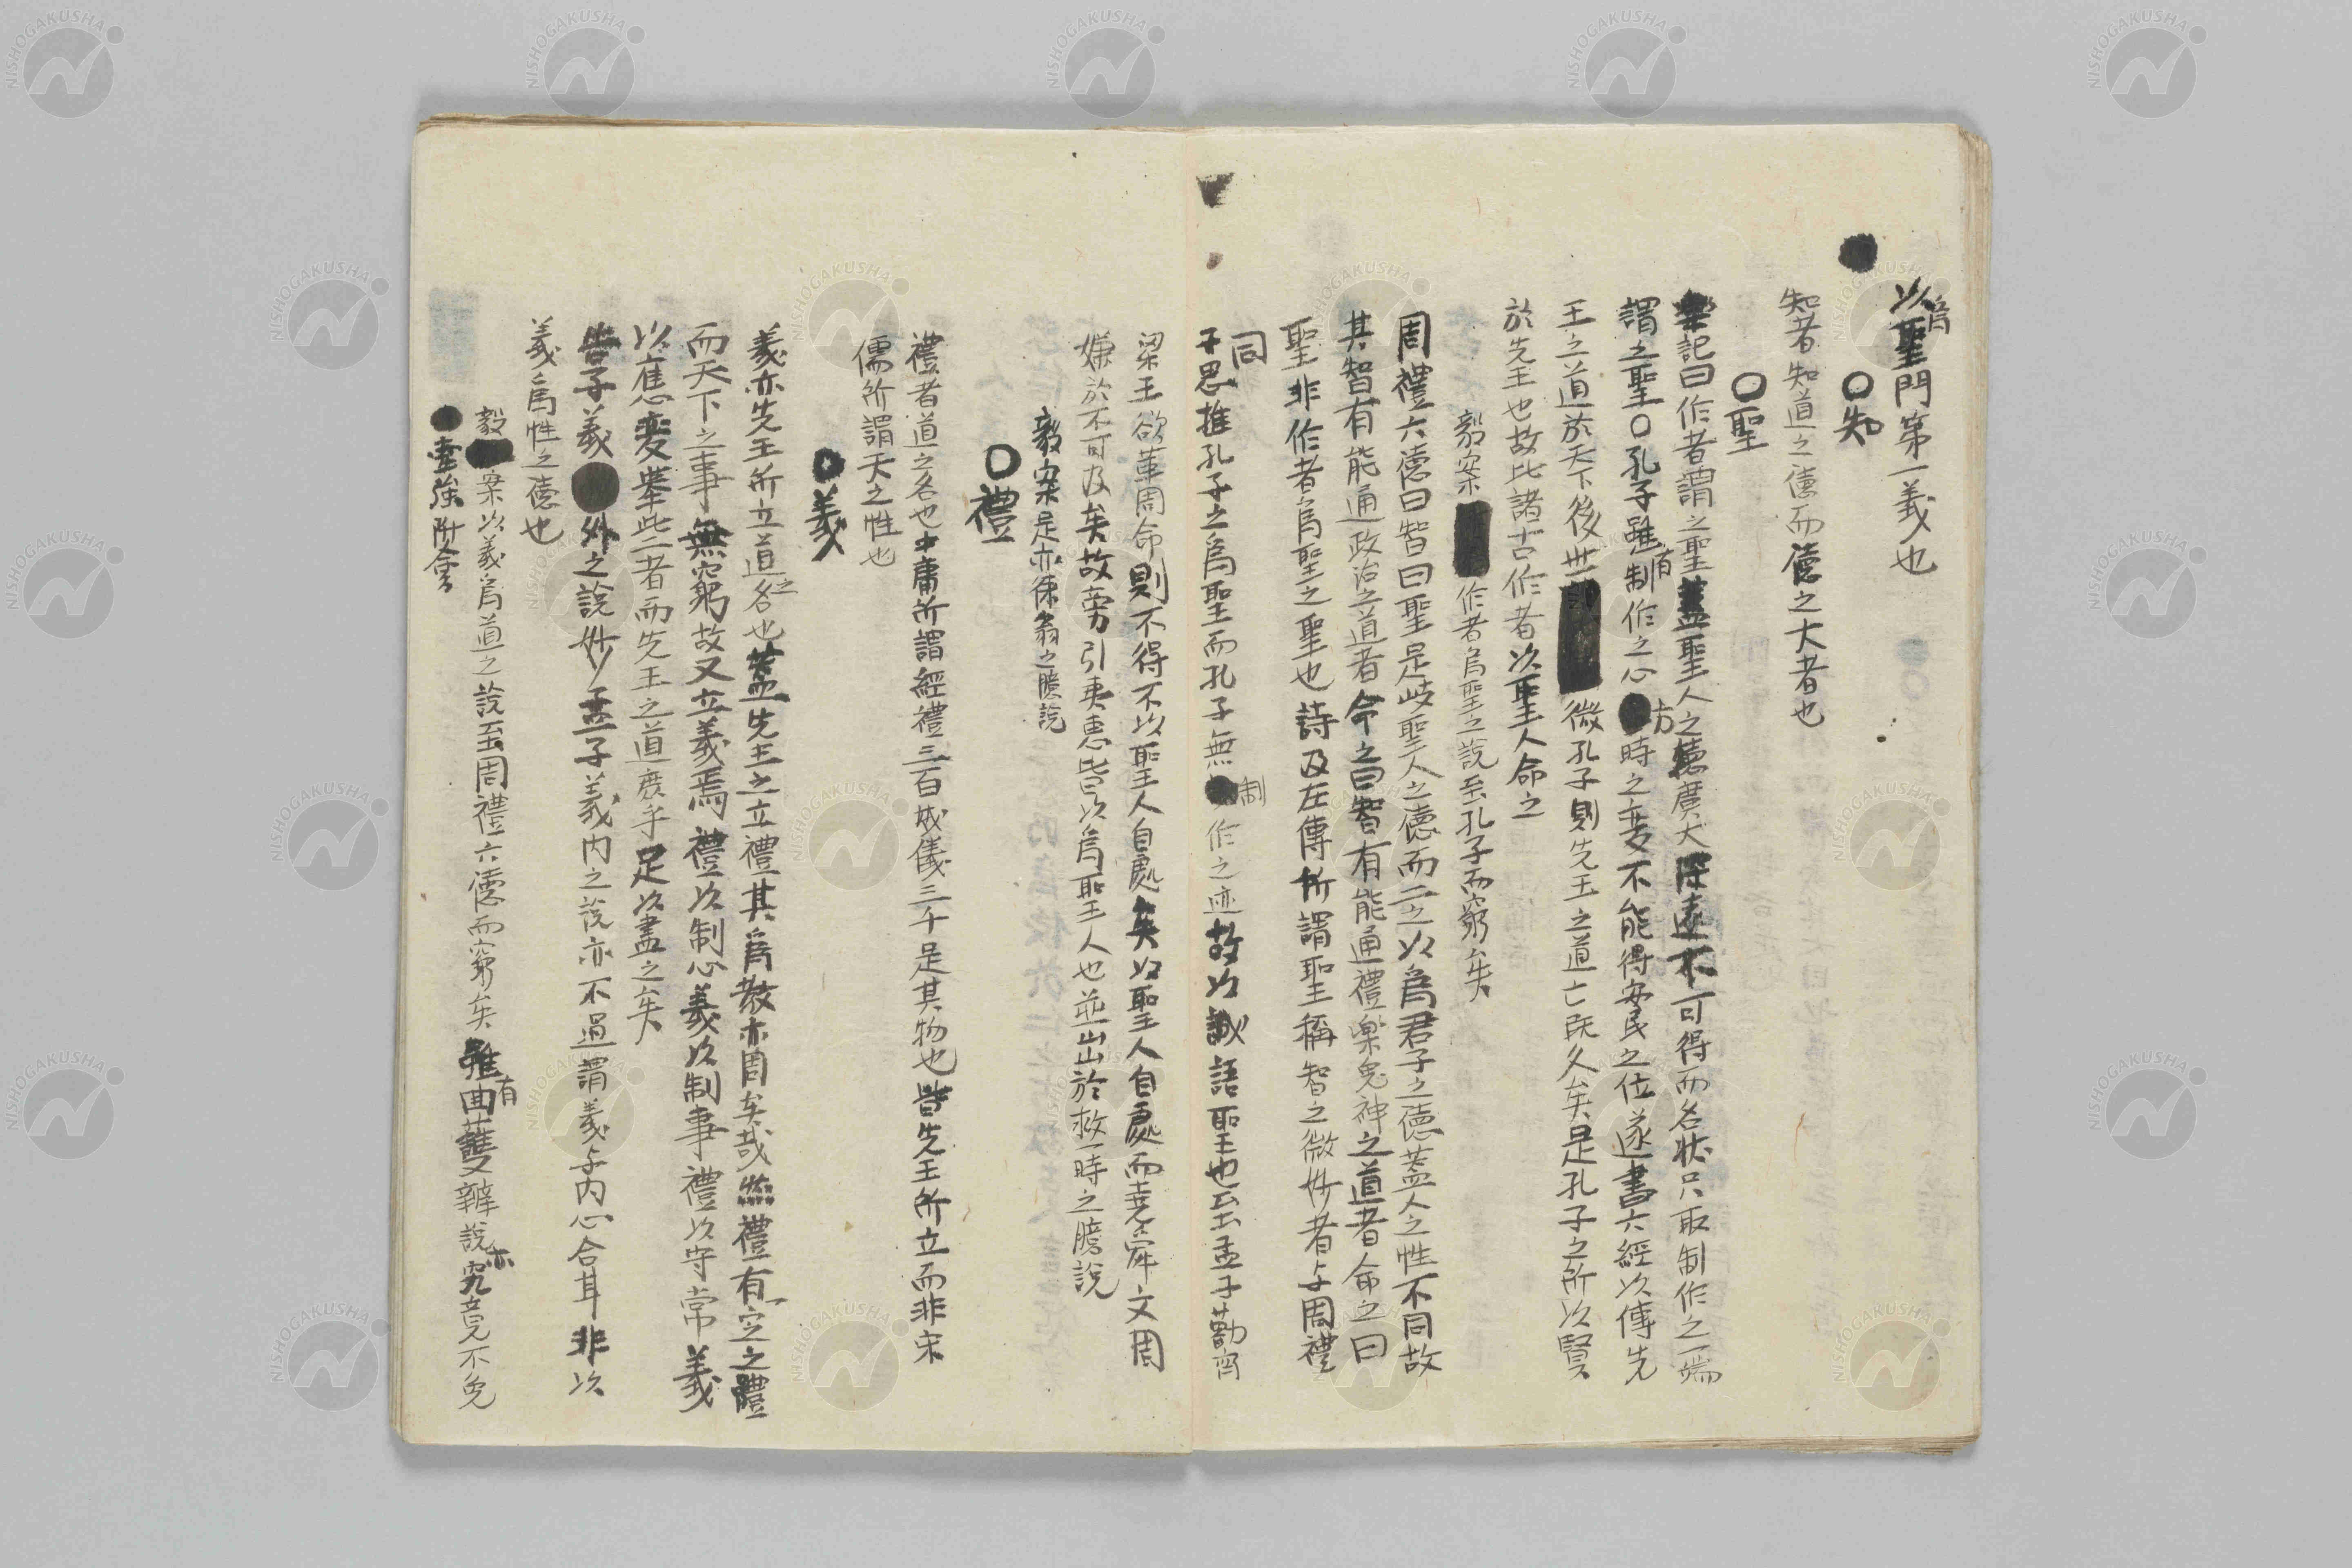 以爲聖門第一義也
○知
知者知道之德而德之大者也
○聖
樂記曰作者謂之聖蓋聖人之德廣大深遠不可得而名狀只取制作之一端
謂之聖○孔子雖有制作之心方時之變不能得安民之位遂書六經以傳先
王之道於天下後世微孔子則先王之道亡既久矣是孔子之所以賢
於先王也故比諸古作者以聖人命之
毅案作者爲聖之說至孔子而窮矣
周禮六德曰智曰聖是岐聖人之德而二之以爲君子之德蓋人之性不同故
其智有能通政治之道者命之曰智有能通禮樂鬼神之道者命之曰
聖非作者爲聖之聖也詩及左傳所謂聖稱智之微妙者与周禮
同
子思推孔子之爲聖而孔子無制作之迹故以誠語聖也至孟子勸齊
梁王欲革周命則不得不以聖人自處矣以聖人自處而堯舜文周
嫌於不可及矣故旁引夷惠皆以爲聖人也並出於救一時之臆說
毅案是亦徠翁之臆說
○禮
禮者道之名也中庸所謂經禮三百威儀三千是其物也皆先王所立而非宋
儒所謂天之性也
○義
義亦先王所立道之名也蓋先王之立禮其爲教亦周矣哉然禮有一定之體
而天下之事無窮故又立義焉禮以制心義以制事禮以守常義
以應變舉此二者而先王之道庶乎足以盡之矣
告子義外之說妙孟子義內之說亦不過謂義与內心合耳非以
義爲性之德也
毅案以義爲道之說至周禮六德而窮矣雖有曲護辯說亦究竟不免
牽強附會